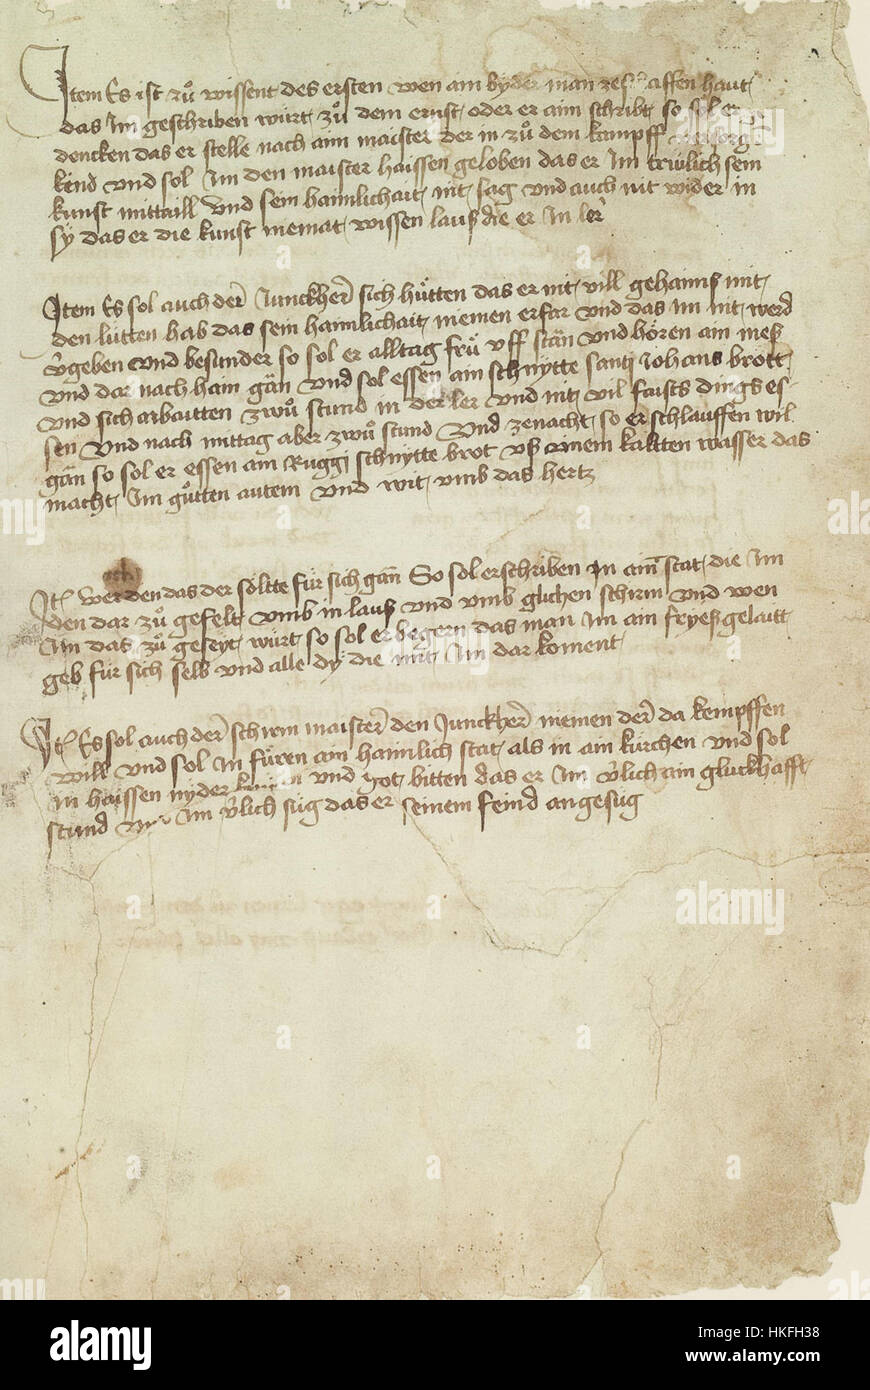 Item Es ist zů wissent des ersten wen ain byder man zeschaffen haut
das Im geschriben wúrt zů dem ernst oder er aim schribt so sol er
dencken das er stelle nach aim maister der in zů dem kampff
kind vnd sol Im den maister haissen geloben das er Im trwlich sein
kunst mittaill vnd sein haimlichait nit sag vnd auch nit wider in
sÿ das er die kunst niemat wissen lauß die er In ler
Item Es sol auch der Junckher sich hůtten das er nit vill gehainß mit
den lútten hab das sein haimlichait niemen erfar vnd das im nit werd
v̄geben vnd besunder so sol er alltag frů vff stān vnd hören ain meß
vnd dar nach haim gän vnd sol essen ain schnytte santj Johans brott
vnd sich arbautten zwů stund in der ler vnd nit vil faists dings es
sen vnd nach mittag aber zwů stund vnd zenacht so er schlauffen wil
gän so sol er essen ain Ruggj schnytte brot vß ainem kaltten wasser das
macht Im gůtten autem vnd wit vmb das hertz
It̄ werden das der sóltte fúr sich gān So sol er schriben in ain stat die Im
den dar zů gefelt vmb in lauß vnd vmb glichen schirm vnd wen
Im das zů geseyt wúrt so sol er begern das man Im ain fryeß gelautt
geb fúr sich selb vnd alle dÿ die mit Im dar koment
It̄ Es sol auch der schirm maister den Junckher niemen der da kempffen
will vnd sol In fúren ain haimlich stat als in ain kirchen vnd sol
In haissen nyder knúen vnd got bitten das er Im v̄lich ain gluckhafft
stund vnd Im v̄lich sůg das er seinem feind angesug
alamy
a
alamy stock photo
HKFH38
www.alamy.com